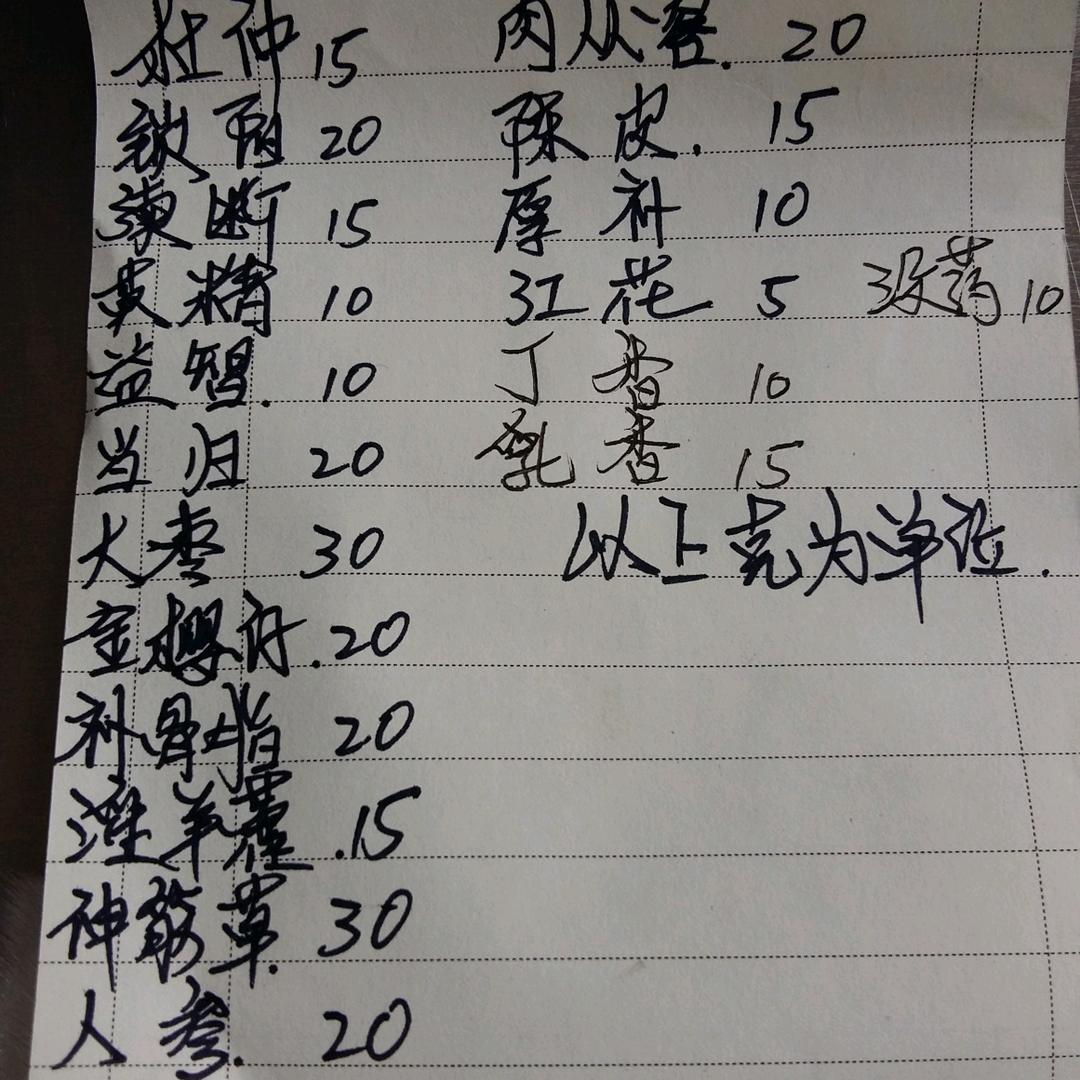 杜仲 15 肉从容. 20
锁阳 20 陈皮. 15
续断 15 厚补 10
黄精 10 红花 5 没药 10
益智. 10 丁香 10
当归 20 乳香 15
大枣 30 以上克为单位.
金樱子. 20
补骨脂 20
淫羊霍 .15
伸筋草. 30
人参. 20